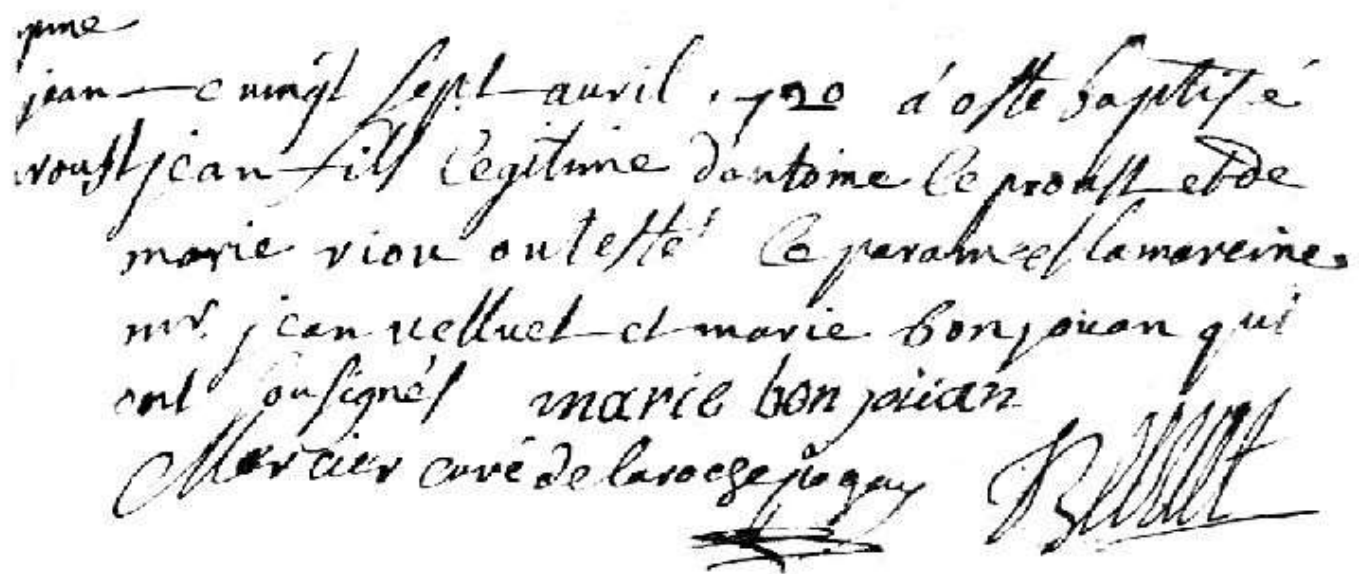 jean
ce vingt sept avril 1720 á esté baptisé
proust jean fils legitime d'antoine le proust et de
marie riou ont esté le parain et la mareine
mr. jean velluet et marie bonjouan qui
ont sousignés marie bon jouan
Mercier curé de la roche pogay